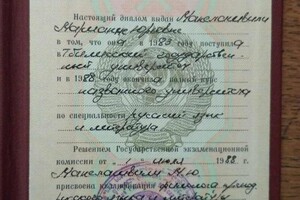 Настоящий диплом выдан
в том, что она в 1983 году поступила
в Тбилисский государствен-
ный университет
и в 1988 году окончила полный курс
названного университета
по специальности русский язык
и литература
Решением Государственной экзаменационной
комиссии от июля 1988 г.
присвоена квалификация филолога, препод.
русского языка и литературы